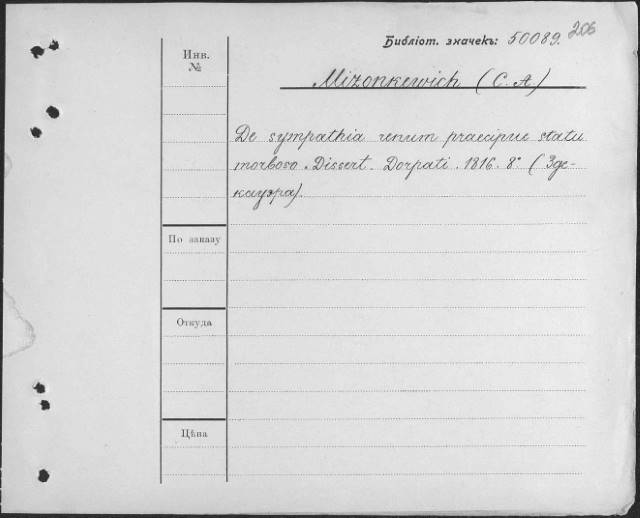 206
Библіот. значекъ: 50089.
Инв. №
Mizonkewich (C. A)
De sympathia renum praecipue statu
morboso. Dissert. Dorpati. 1816. 8° (Зде-
кауэра).
По заказу
Откуда
Цѣна